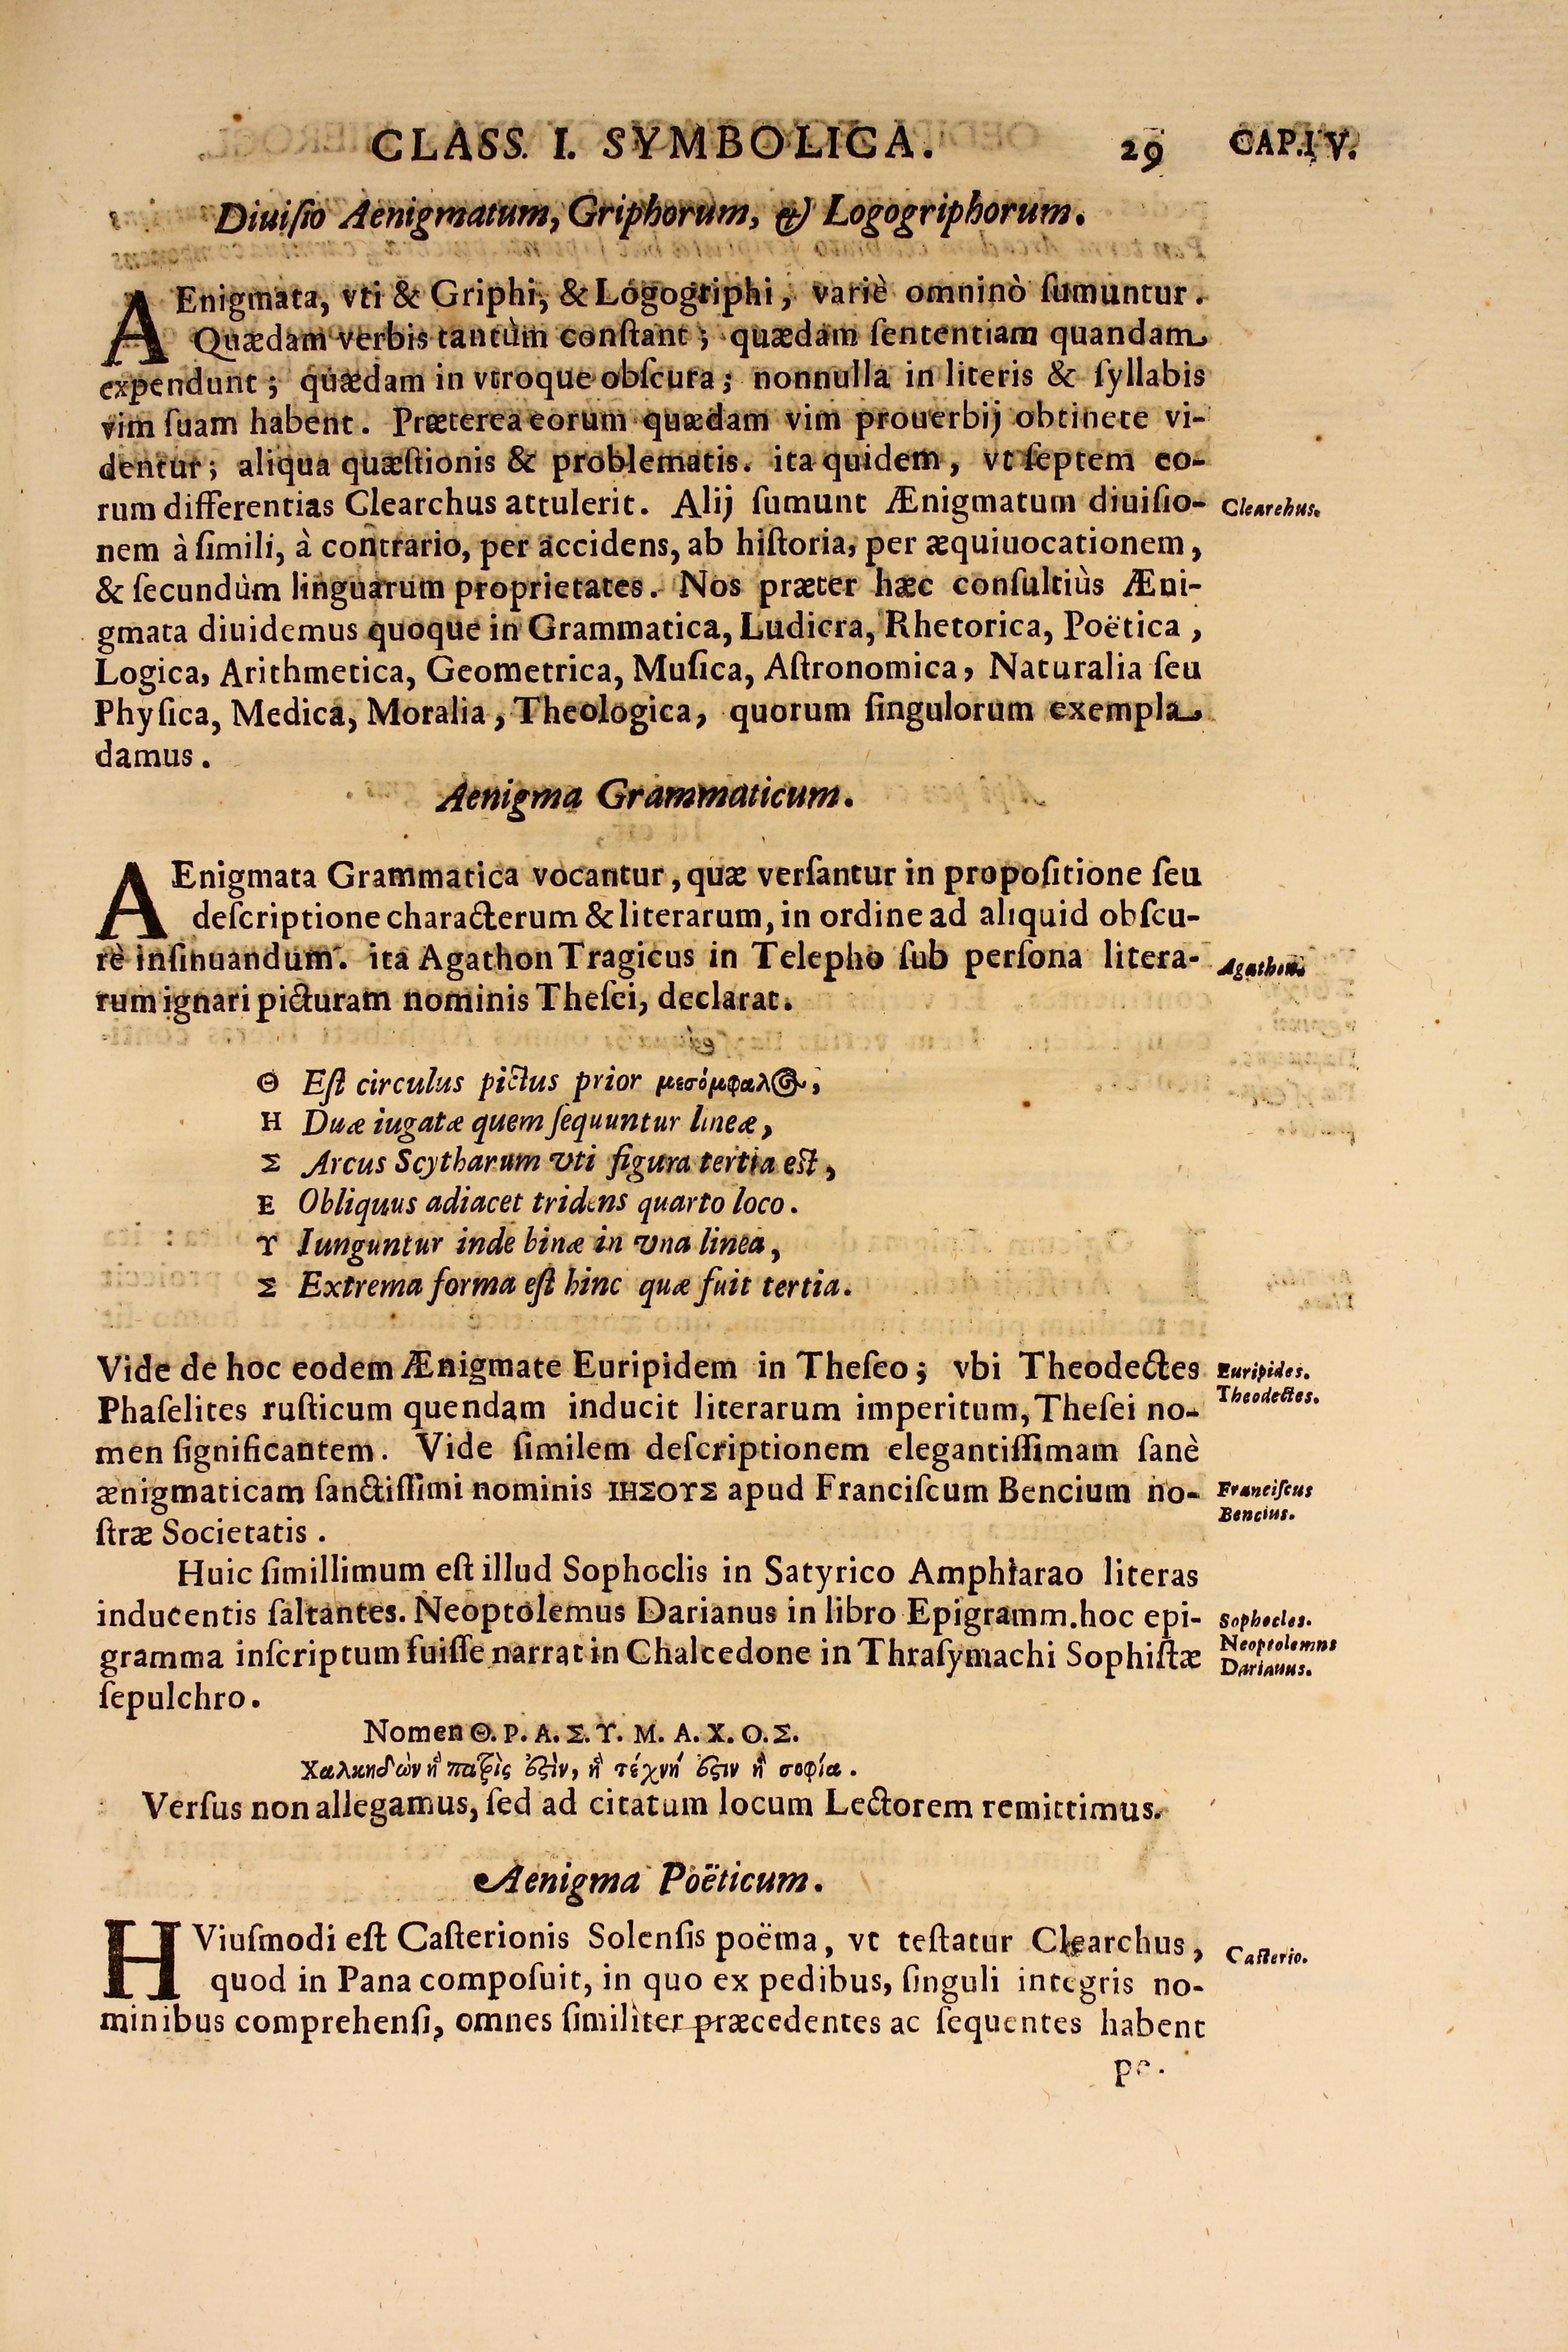 CLASS. I. SYMBOLICA. 29 CAP. IV.
Diuiſio Aenigmatum, Griphorum, & Logogriphorum.
AEnigmata, vti & Griphi, & Logogriphi, variè omninò ſumuntur.
Quædam verbis tantùm conſtant; quædam ſententiam quandam
expendunt; quædam in vtroque obſcura; nonnulla in literis & ſyllabis
vim ſuam habent. Præterea eorum quædam vim prouerbij obtinere vi-
dentur; aliqua quæſtionis & problematis. ita quidem, vt ſeptem eo-
rum differentias Clearchus attulerit. Alij ſumunt Ænigmatum diuiſio-
Clearchus.
nem à ſimili, à contrario, per accidens, ab hiſtoria, per æquiuocationem,
& ſecundùm linguarum proprietates. Nos præter hæc conſultiùs Æni-
gmata diuidemus quoque in Grammatica, Ludicra, Rhetorica, Poëtica,
Logica, Arithmetica, Geometrica, Muſica, Aſtronomica, Naturalia ſeu
Phyſica, Medica, Moralia, Theologica, quorum ſingulorum exempla
damus.
Aenigma Grammaticum.
AEnigmata Grammatica vocantur, quæ verſantur in propoſitione ſeu
deſcriptione characterum & literarum, in ordine ad aliquid obſcu-
rè inſinuandum. ita Agathon Tragicus in Telepho ſub perſona litera-
Agathon
rum ignari picturam nominis Theſei, declarat.
Θ Eſt circulus pictus prior μεσόμφαλος,
Η Duæ iugatæ quem ſequuntur lineæ,
Σ Arcus Scytharum vti figura tertia eſt,
Ε Obliquus adiacet tridens quarto loco.
Υ Iunguntur inde binæ in vna linea,
Σ Extrema forma eſt hinc quæ fuit tertia.
Vide de hoc eodem Ænigmate Euripidem in Theſeo; vbi Theodectes
Euripides.
Phaſelites ruſticum quendam inducit literarum imperitum, Theſei no-
Theodectes.
men ſignificantem. Vide ſimilem deſcriptionem elegantiſſimam ſanè
ænigmaticam ſanctiſſimi nominis ΙΗΣΟΥΣ apud Franciſcum Bencium no-
Franciſcus
Bencius.
ſtræ Societatis.
Huic ſimillimum eſt illud Sophoclis in Satyrico Amphiarao literas
inducentis ſaltantes. Neoptolemus Darianus in libro Epigramm. hoc epi-
Sophocles.
gramma inſcriptum fuiſſe narrat in Chalcedone in Thraſymachi Sophiſtæ
Neoptolemus
Darianus.
ſepulchro.
Nomen Θ. Ρ. Α. Σ. Υ. Μ. Α. Χ. Ο. Σ.
Χαλκηδὼν ἡ πατρὶς ἐστὶν, ἡ τέχνή ἐστιν ἡ σοφία.
Verſus non allegamus, ſed ad citatum locum Lectorem remittimus.
Aenigma Poëticum.
HViuſmodi eſt Caſterionis Solenſis poëma, vt teſtatur Clearchus,
Caſterio.
quod in Pana compoſuit, in quo ex pedibus, ſinguli integris no-
minibus comprehenſi, omnes ſimiliter præcedentes ac ſequentes habent
pe-